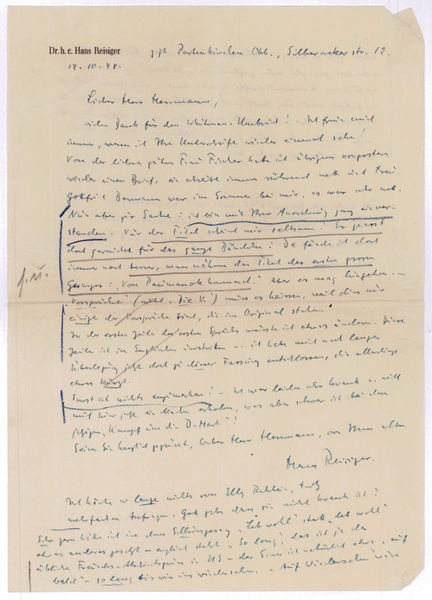 Dr. h. c. Hans Reisiger
z. Zt. Partenkirchen Obb., Silberackerstr. 12.
14.10.48.
Lieber Herr Herrmann,
vielen Dank für den Whitman-Umbruch! Ich freue mich
immer, wenn ich Ihre Unterschrift wieder einmal sehe!
Von der lieben guten Frau Fischer hatte ich übrigens vorgestern
wieder einen Brief, sie schreibt immer rührend nett und treu.
Gottfried Bermann war im Sommer bei mir, es war sehr nett.
Nun aber zur Sache: ich bin mit Ihrer Anordnung ganz einver-
standen. Nur der Titel scheint mir seltsam! Er passt
doch garnicht für das ganze Bändchen! Da fände ich doch
immer noch besser, man nähme den Titel des ersten grossen
Gesanges: Von Paumanok kommend! Aber es mag hingehen.
Vorsprüche (nicht: Die V.) muss es heissen, weil dies nur
einige der Vorsprüche sind, die im Original stehen.
In der ersten Zeile des ersten Spruchs musste ich etwas ändern. Diese
Zeile ist im Englischen umstritten – ich habe mich nach langer
Überlegung jetzt doch zu dieser Fassung entschlossen, die allerdings
etwas
Sonst ist nichts anzumerken! – Ich war leider sehr krank – will
mich hier jetzt ein bischen erholen, was aber schwer ist bei dem
jetzigen Kampf um die D-Mark!
Seien Sie herzlich gegrüsst, lieber Herr Herrmann, von Ihrem alten
Hans Reisiger.
Ich hörte so lange nichts von Elly trotz
mehrfachen Anfragen. Gott gebe dass sie nicht krank ist!
Sehr gern hätte ich in dem Schlussgesang "Leb wohl" statt "Leb wohl"
etwas anderes gesetzt – englisch steht "So long", das ist ja der
übliche Freundes-Abschiedsgruss in US – der Sinn ist natürlich eher "auf
bald" – so lang bis wir uns wiedersehen. – Auf Wiedersehen wäre